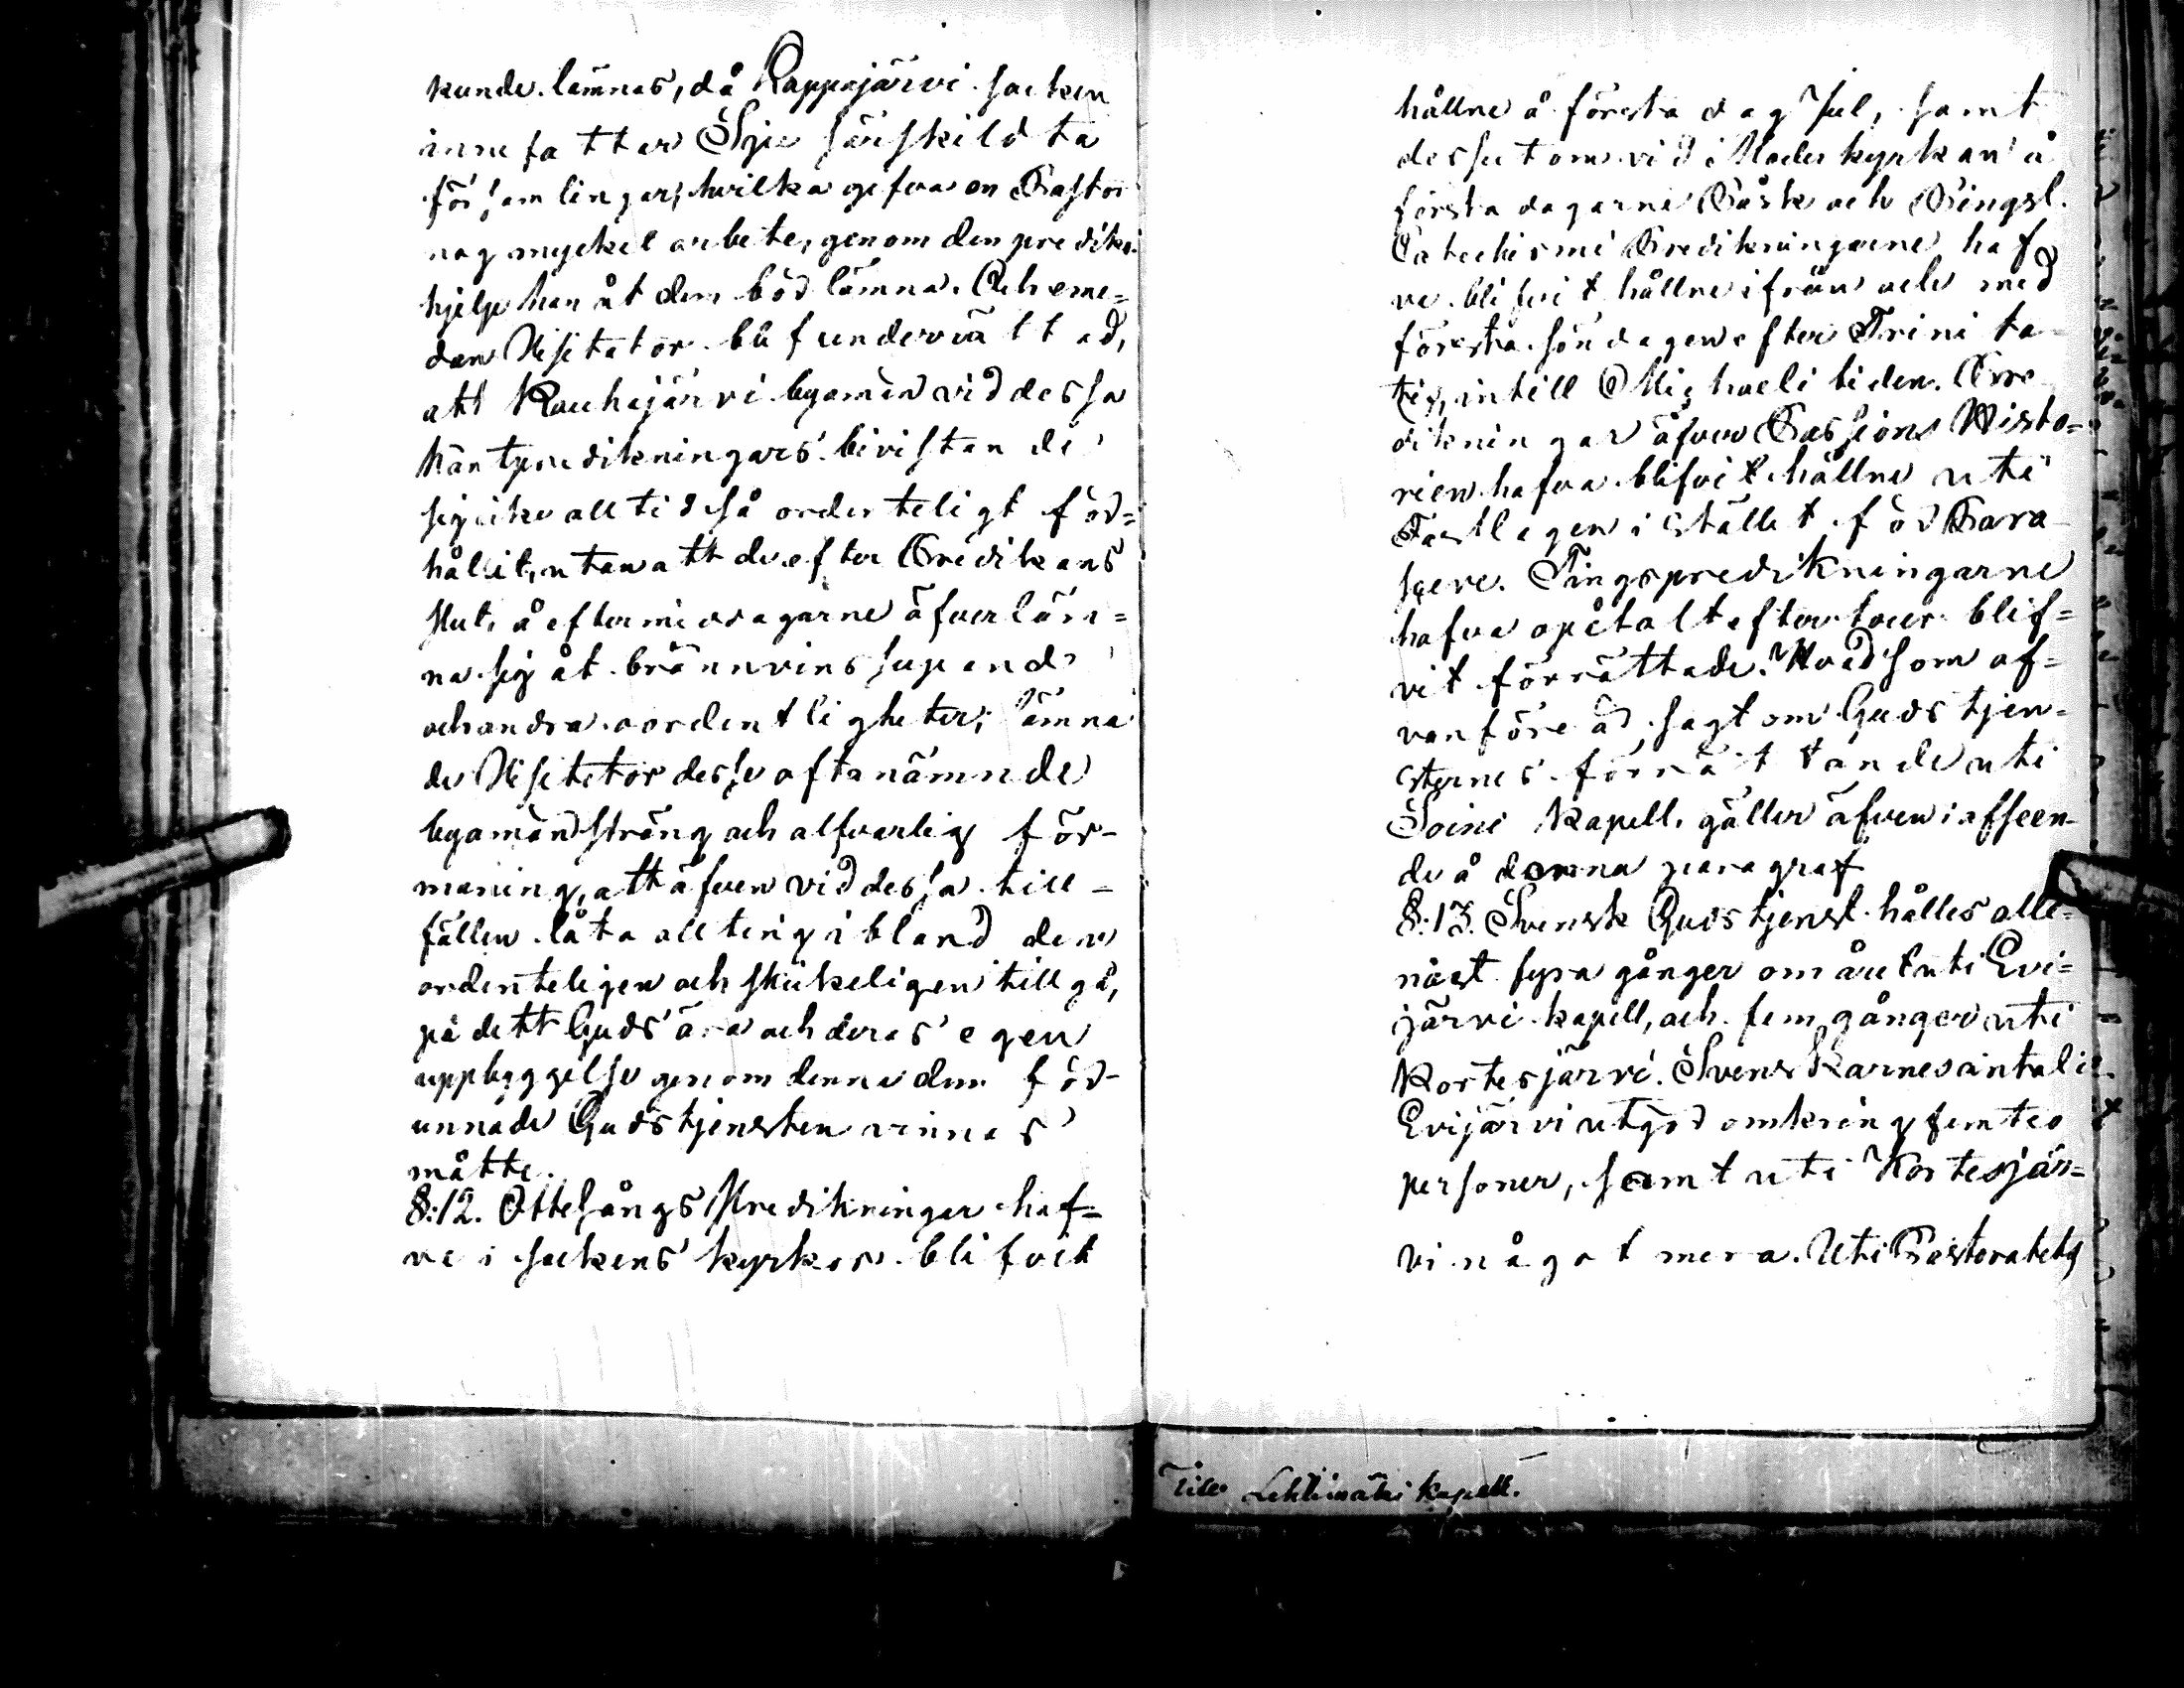 kunde lämnas, då Lappajärvi socken
innefattar Sju särskildta
församlingar, hvilka gifva en Pastor
nog mycket arbete, genom den prediko
hjelp han åt dem bör lämna. Och eme=
dan Visitator blef underrättad,
att Kauhajärvi byamän vid dessa
häntpredikningars bivistande
sig icke alltid så ordenteligt för=
hållit, utan att de efter Predikans
slut, å eftermiddagarne äfverläm=
na sig åt brännvins supande
och andra oordentligheter; lämna
de Visitator desse oftanämnde
byamän sträng och alfvarlig för-
maning, att äfven vid dessa till-
fällen låta allting ibland dem
ordenteligen och skickeligen tillgå,
på dett Guds ära och deras egen
uppbyggelse genom denna dem för-
unnade Gudstjensten vinnas
måtte.
§:12. Ottesångs Predikningar haf=
va i sockens kyrkor blifvit
hållne å första dag Jul, samt
dessutom vid Moderkyrkan å
första dagarne Påsk och Pingst.
Catechismi Predikningarne haf
va blifvit hållne ifrån och med
första söndagen efter Trinita-
tis, intill Michaeli tiden. Pre
dikningar öfver Passions Histo=
rien hafva blifvit hållne uti
Fastlagen i stället för Para-
seve. Tingspredikningarne
hafva opåtalt efter tour blif=
vit förrättade. Hvad som of=
vanföre är sagt om Gudstjen=
sternes förrättande uti
Soini Kapell, gäller äfven i afseen-
de å denna paragraf
§:13. Svensk Gudstjenst hålles alle=
nast fyra gånger om året uti Evi=
järvi kapell, och fem gånger uti
Kortesjärvi. Svenskarnes antal i
Evijärvi utgör omkring femtio
personer, samt uti Kortesjär=
vi något mera. Uti Pastoratets
Till Lehtimäki kapell.